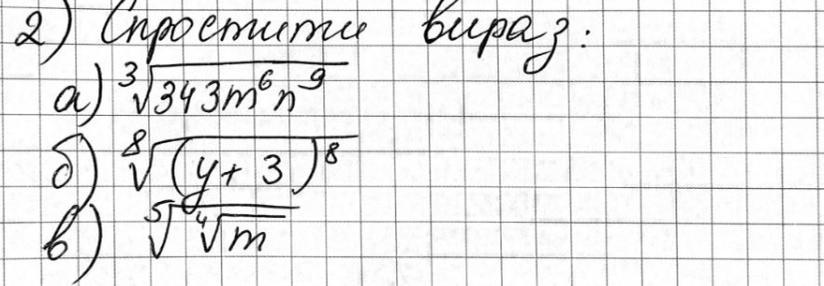 2) Спростити вираз:
а) ∛(343m⁶n⁹)
б) ⁸√((y + 3)⁸)
в) ⁵√(⁴√m)